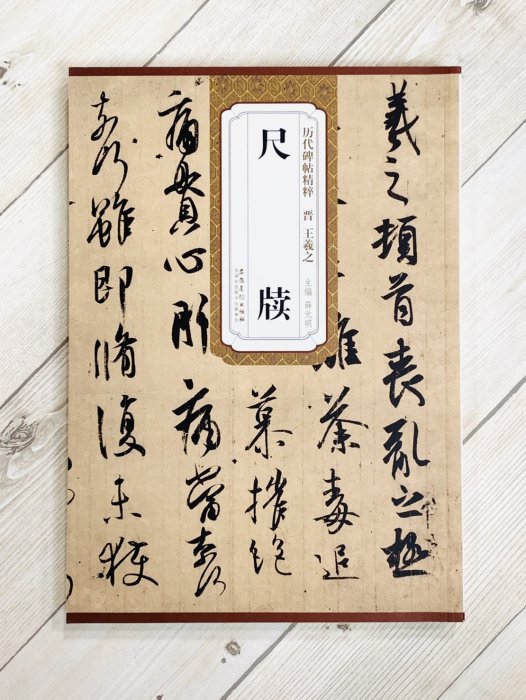 羲之頓首喪亂之極
離荼毒追
慕摧絶
痛貫心肝痛當奈何
奈何雖即脩復未獲
历代碑帖精粹 晋 王羲之
主编 薛元明
尺牍
安徽美术出版社